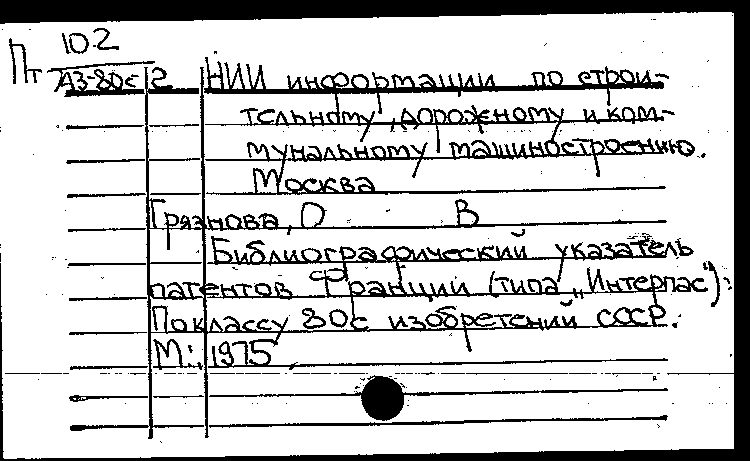 Пт 10.2
А3-80с 2 НИИ информации по строи-
тельному, дорожному и ком-
мунальному машиностроению.
Москва
Грязнова, О В
Библиографический указатель
патентов Франции (типа „Интерпас"):
По классу 80с изобретений СССР.
М:, 1975